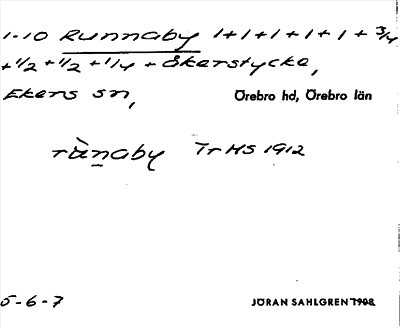 1-10 Runnaby 1+1+1+1+1+3/4
+1/2+1/2+1/4+åkerstycke,
Ekers sn,
Örebro hd, Örebro län
rànaby TrHS 1912
5-6-7
JÖRAN SAHLGREN 1908